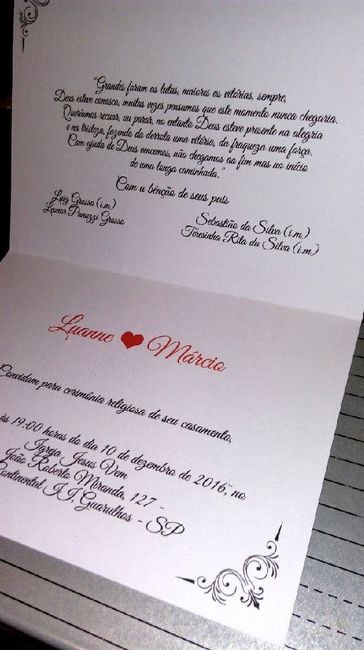 "Grandes foram as lutas, maiores as vitórias, sempre,
Deus esteve conosco, muitas vezes pensamos que este momento nunca chegaria.
Queríamos recuar, ou parar, no entanto Deus esteve presente na alegria
e na tristeza, fazendo da derrota uma vitória, da fraqueza uma força.
Com ajuda de Deus vencemos, não chegamos ao fim mas no início
de uma longa caminhada."
Com a bênção de seus pais
Luiz Grosso (i.m)
Leonor Panuzzi Grosso
Sebastião da Silva (i.m)
Teresinha Rita da Silva (i.m)
Luanne ❤ Márcio
Convidam para cerimônia religiosa de seu casamento,
às 19:00 horas do dia 10 de dezembro de 2016, no
Igreja Jesus Vem
João Roberto Miranda, 127 -
Continental II, Guarulhos - SP